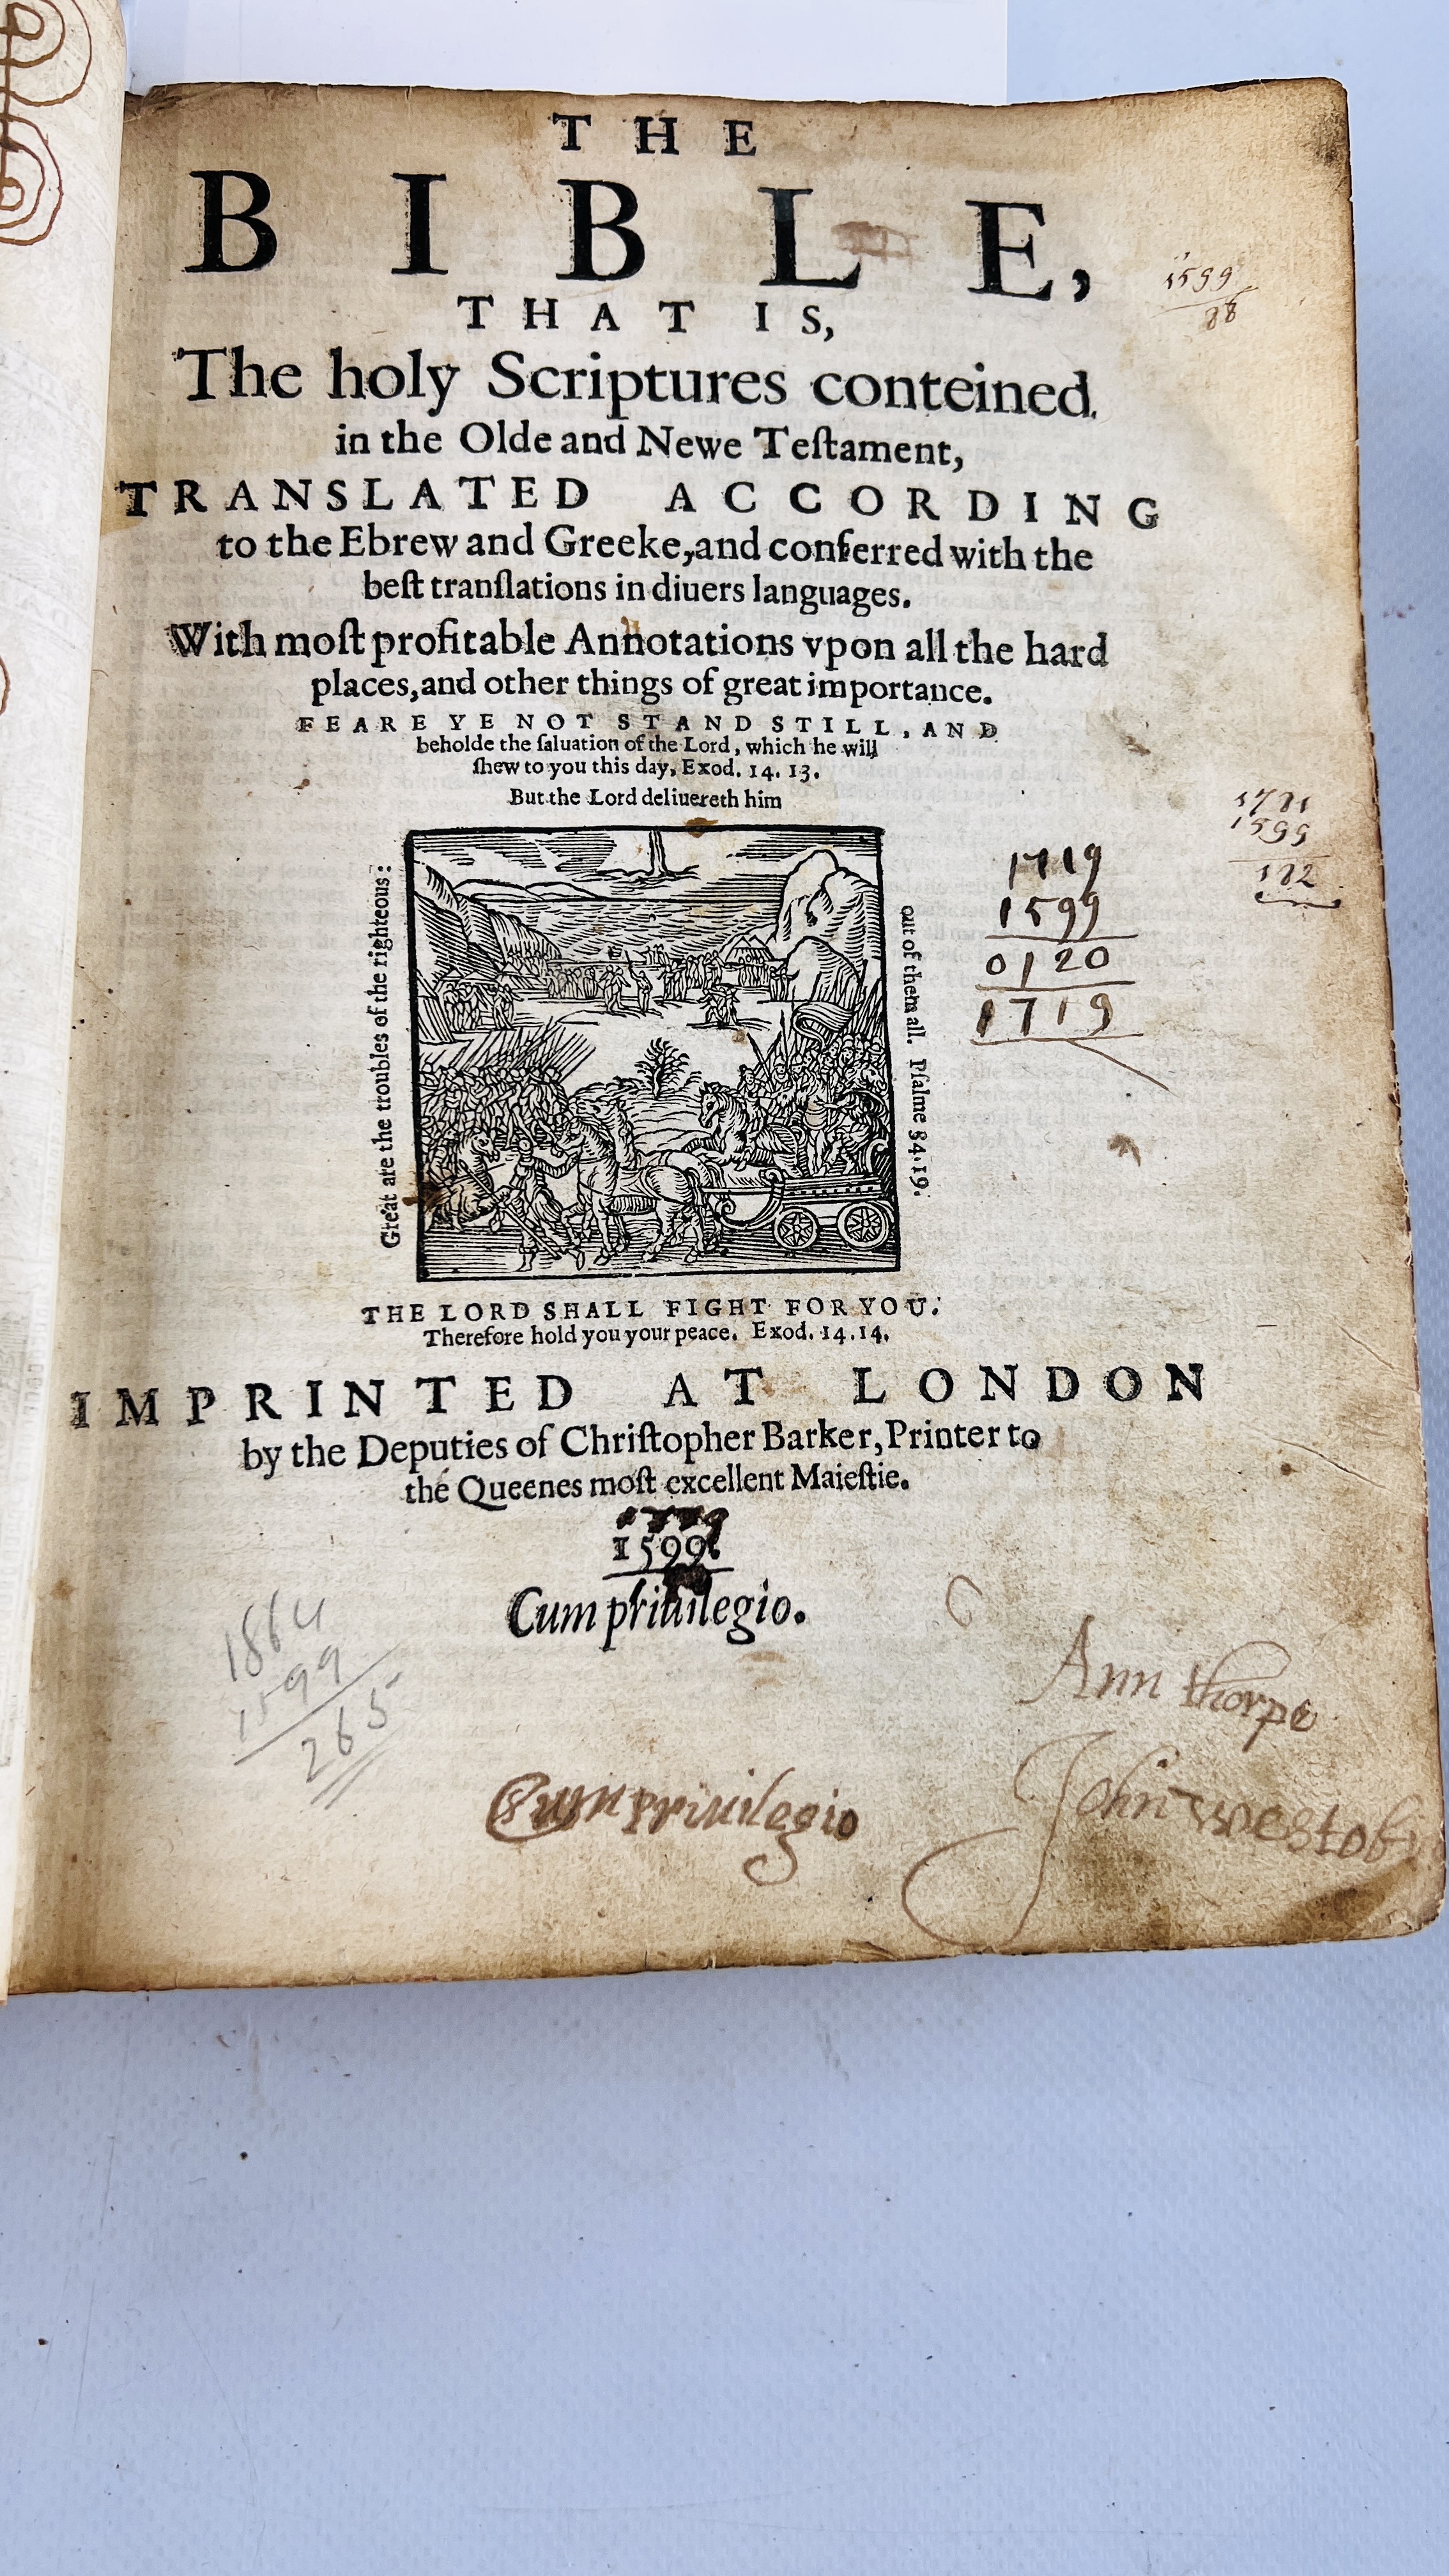 THE
BIBLE,
THAT IS,
The holy Scriptures conteined
in the Olde and Newe Teſtament,
TRANSLATED ACCORDING
to the Ebrew and Greeke, and conferred with the
beſt tranſlations in diuers languages.
With moſt profitable Annotations vpon all the hard
places, and other things of great importance.
FEARE YE NOT STAND STILL, AND
beholde the ſaluation of the Lord, which he will
ſhew to you this day, Exod. 14. 13.
But the Lord deliuereth him
Great are the troubles of the righteous:
out of them all. Pſalme 34.19.
THE LORD SHALL FIGHT FOR YOU:
Therefore hold you your peace. Exod. 14.14.
IMPRINTED AT LONDON
by the Deputies of Chriſtopher Barker, Printer to
the Queenes moſt excellent Maieſtie.
1599.
Cum priuilegio.
1599
88
1781
1599
182
1719
1599
0120
1719
1864
1599
265
Ann thorpe
John Westoby
Cum priuilegio